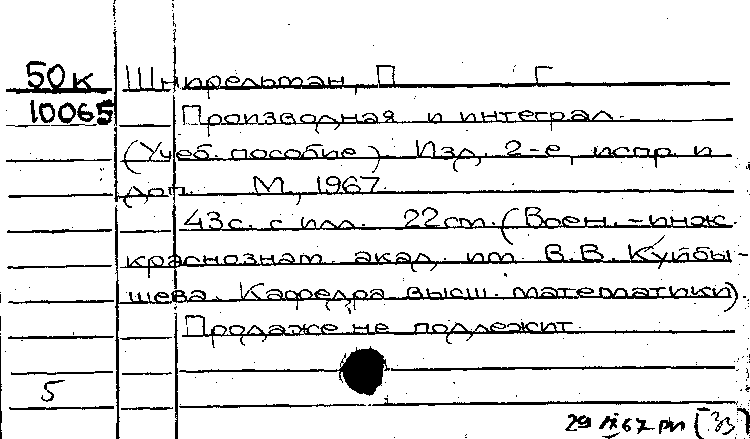 50к Шнирельман, П Г
10065 Производная и интеграл.
(Учеб. пособие) Изд. 2-е, испр. и
доп. М., 1967.
43с. с илл. 22см. (Воен.-инж.
краснознам. акад. им. В.В. Куйбы-
шева. Кафедра высш. математики).
Продаже не подлежит.
5
29 IX 67